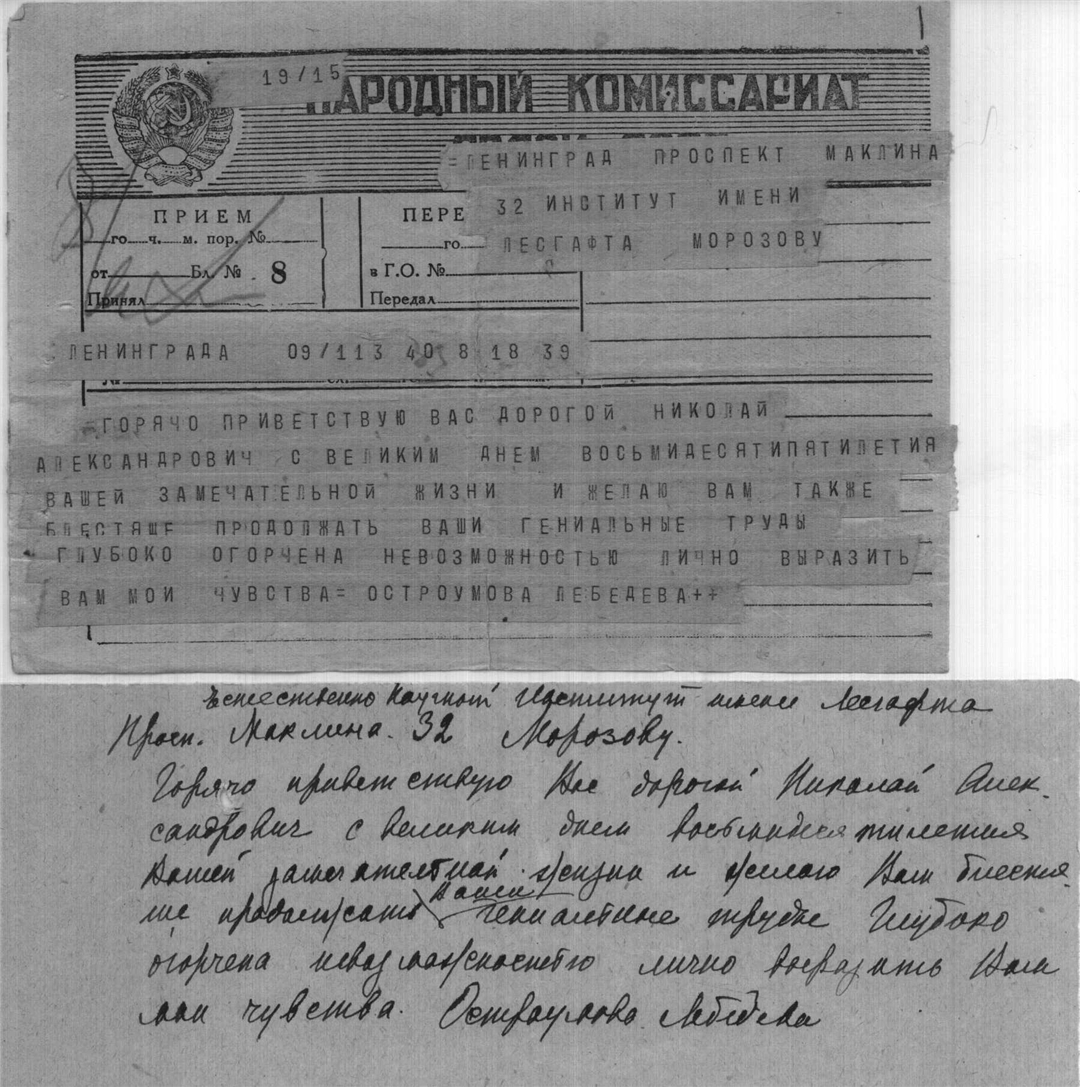 19/15
НАРОДНЫЙ КОМИССАРИАТ
=ЛЕНИНГРАД ПРОСПЕКТ МАКЛИНА
32 ИНСТИТУТ ИМЕНИ
ЛЕСГАФТА МОРОЗОВУ
ПРИЕМ
го ч. м. пор. №
от Бл. № 8
Принял
ПЕРЕ
го
в Г.О. №
Передал
ЛЕНИНГРАДА 09/113 40 8 18 39
=ГОРЯЧО ПРИВЕТСТВУЮ ВАС ДОРОГОЙ НИКОЛАЙ
АЛЕКСАНДРОВИЧ С ВЕЛИКИМ ДНЕМ ВОСЬМИДЕСЯТИПЯТИЛЕТИЯ
ВАШЕЙ ЗАМЕЧАТЕЛЬНОЙ ЖИЗНИ И ЖЕЛАЮ ВАМ ТАКЖЕ
БЛЕСТЯЩЕ ПРОДОЛЖАТЬ ВАШИ ГЕНИАЛЬНЫЕ ТРУДЫ
ГЛУБОКО ОГОРЧЕНА НЕВОЗМОЖНОСТЬЮ ЛИЧНО ВЫРАЗИТЬ
ВАМ МОИ ЧУВСТВА= ОСТРОУМОВА ЛЕБЕДЕВА++
Естественно Научный Институт имени Лесгафта
Просп. Маклина. 32 Морозову.
Горячо приветствую Вас дорогой Николай Алек-
сандрович с великим днем восьмидесятилетия
Вашей замечательной жизни и желаю Вам блестя-
ще продолжать Ваши гениальные труды Глубоко
огорчена невозможностью лично выразить Вам
мои чувства. Остроумова Лебедева